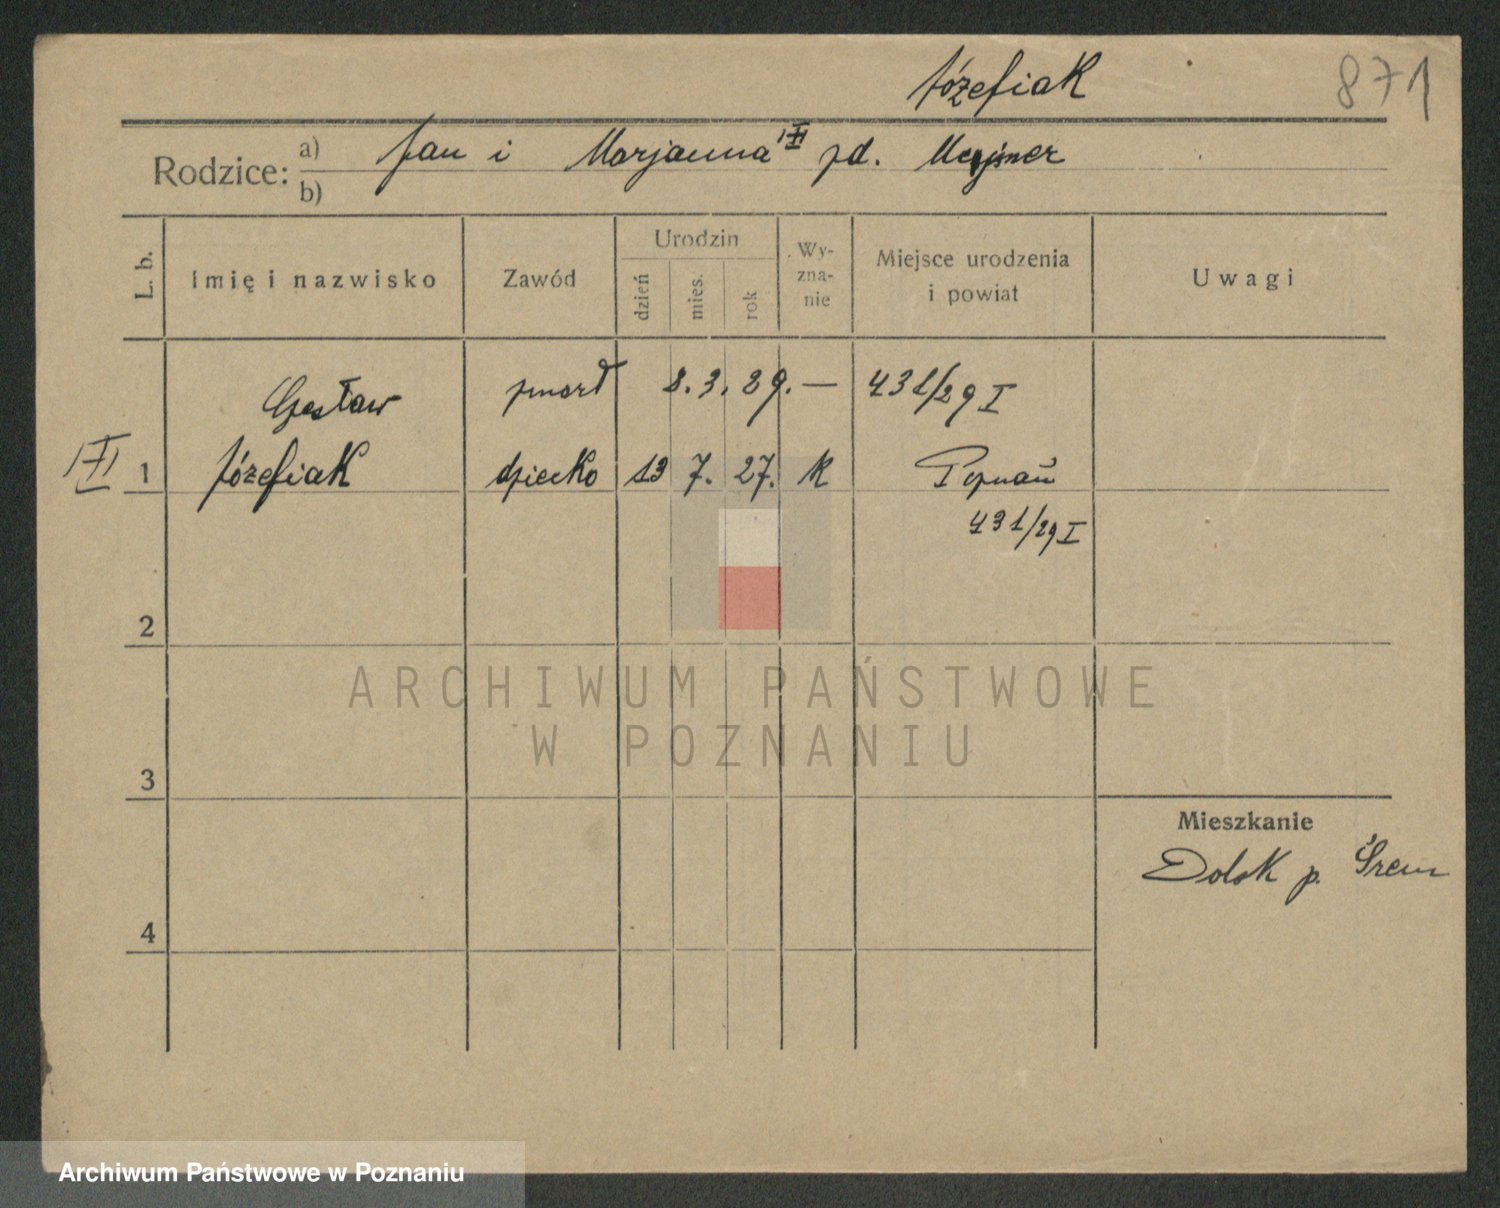 Józefiak 871
Rodzice: a) Jan i Marjanna III zd.
b)
L. b. Imię i nazwisko Zawód Urodzin dzień mies. rok Wy-zna-nie Miejsce urodzenia i powiat Uwagi
Czesław zmarł 8. 3. 29. — 431/29 I
III 1 Józefiak dziecko 13 7. 27. k Poznań
431/29 I
2
ARCHIWUM PAŃSTWOWE
W POZNANIU
3
Mieszkanie
Dolsk p. Śrem
4
Archiwum Państwowe w Poznaniu